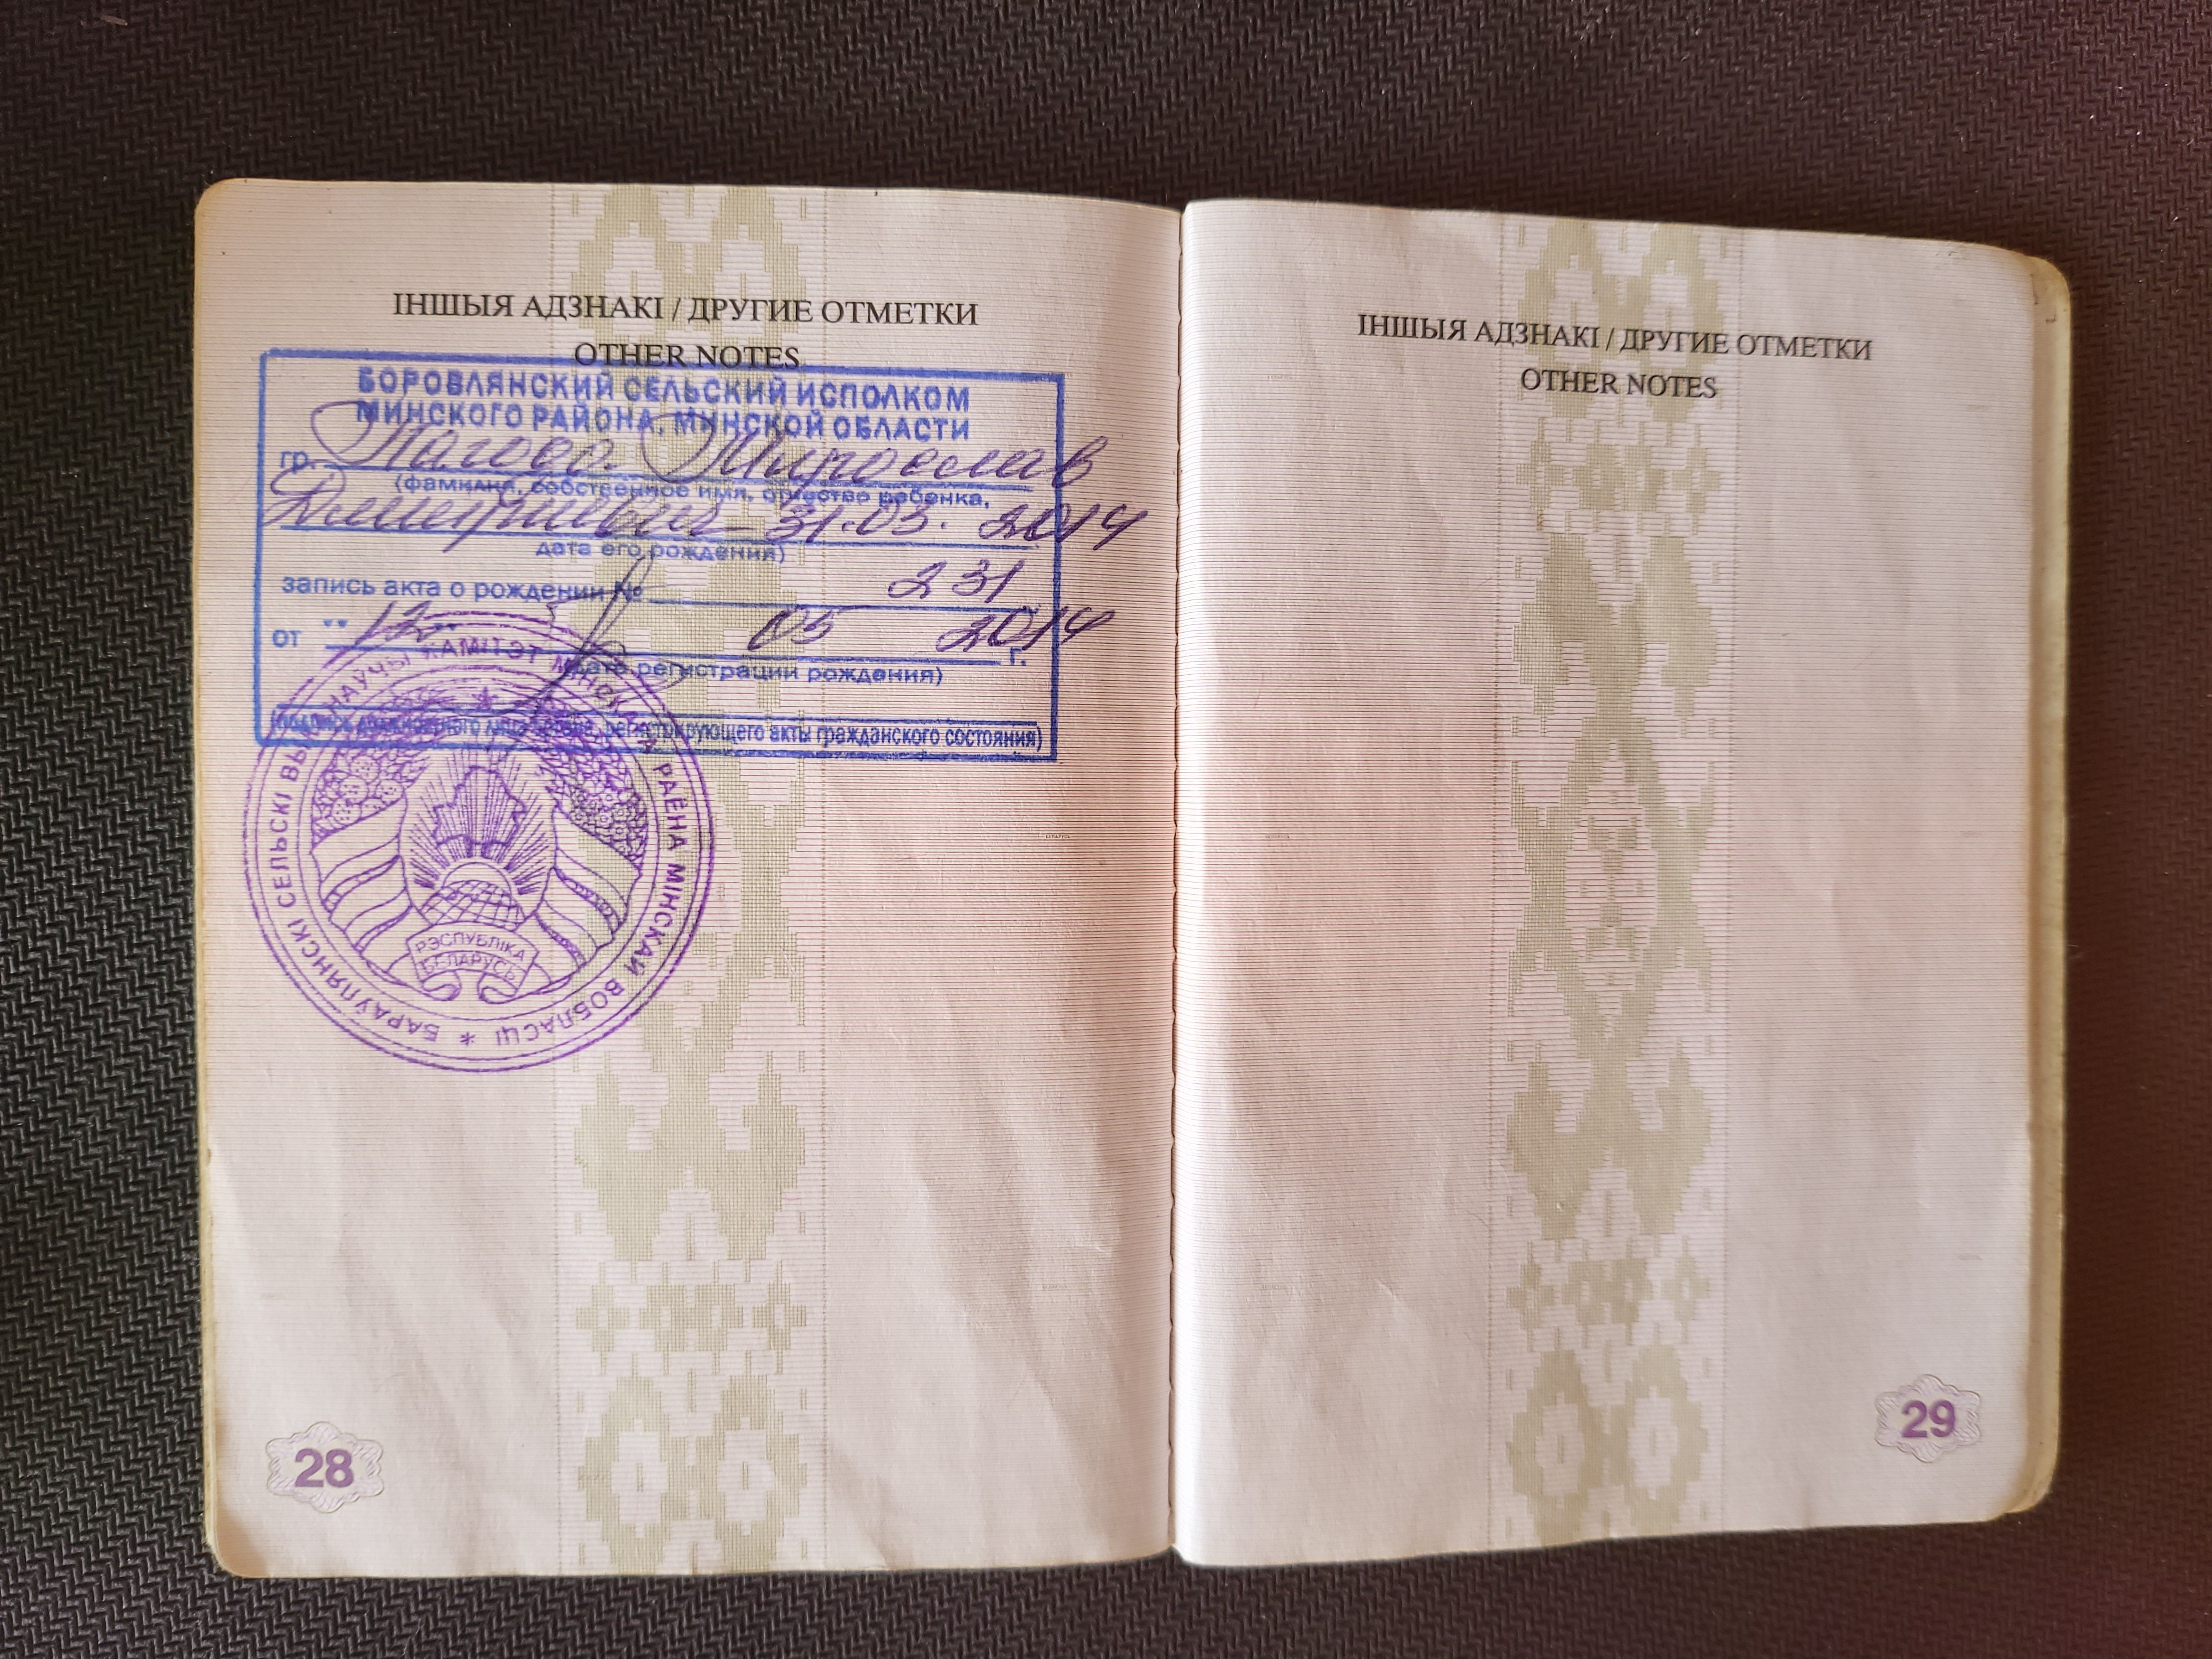 ІНШЫЯ АДЗНАКІ / ДРУГИЕ ОТМЕТКИ
OTHER NOTES
БОРОВЛЯНСКИЙ СЕЛЬСКИЙ ИСПОЛКОМ
МИНСКОГО РАЙОНА, МИНСКОЙ ОБЛАСТИ
гр. Мирослав
(фамилия, собственное имя, отчество ребенка,
Дмитриевич 31.03.2014
дата его рождения)
запись акта о рождении № 231
от "12" 05 2014 г.
(дата регистрации рождения)
(подпись должностного лица органа, регистрирующего акты гражданского состояния)
БАРАЎЛЯНСКІ СЕЛЬСКІ ВЫКАНАЎЧЫ КАМІТЭТ МІНСКАГА РАЁНА МІНСКАЙ ВОБЛАСЦІ
РЭСПУБЛІКА
БЕЛАРУСЬ
28
ІНШЫЯ АДЗНАКІ / ДРУГИЕ ОТМЕТКИ
OTHER NOTES
29